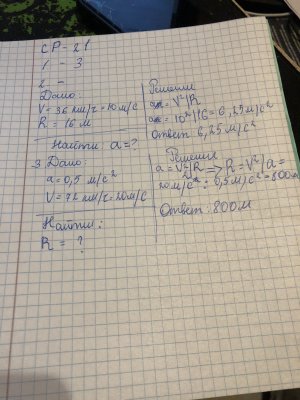 СР-21
1 - 3
2. -
Дано:
V = 36 км/г = 10 м/с
R = 16 м
Найти a = ?
Решение
a = V²/R
a = 10²/16 = 6,25 м/с²
Ответ 6,25 м/с²
3. Дано:
a = 0,5 м/с²
V = 72 км/г = 20 м/с
Найти:
R = ?
Решение
a = V²/R => R = V²/a =
20 м/с² : 0,5 м/с² = 800 м
Ответ: 800 м